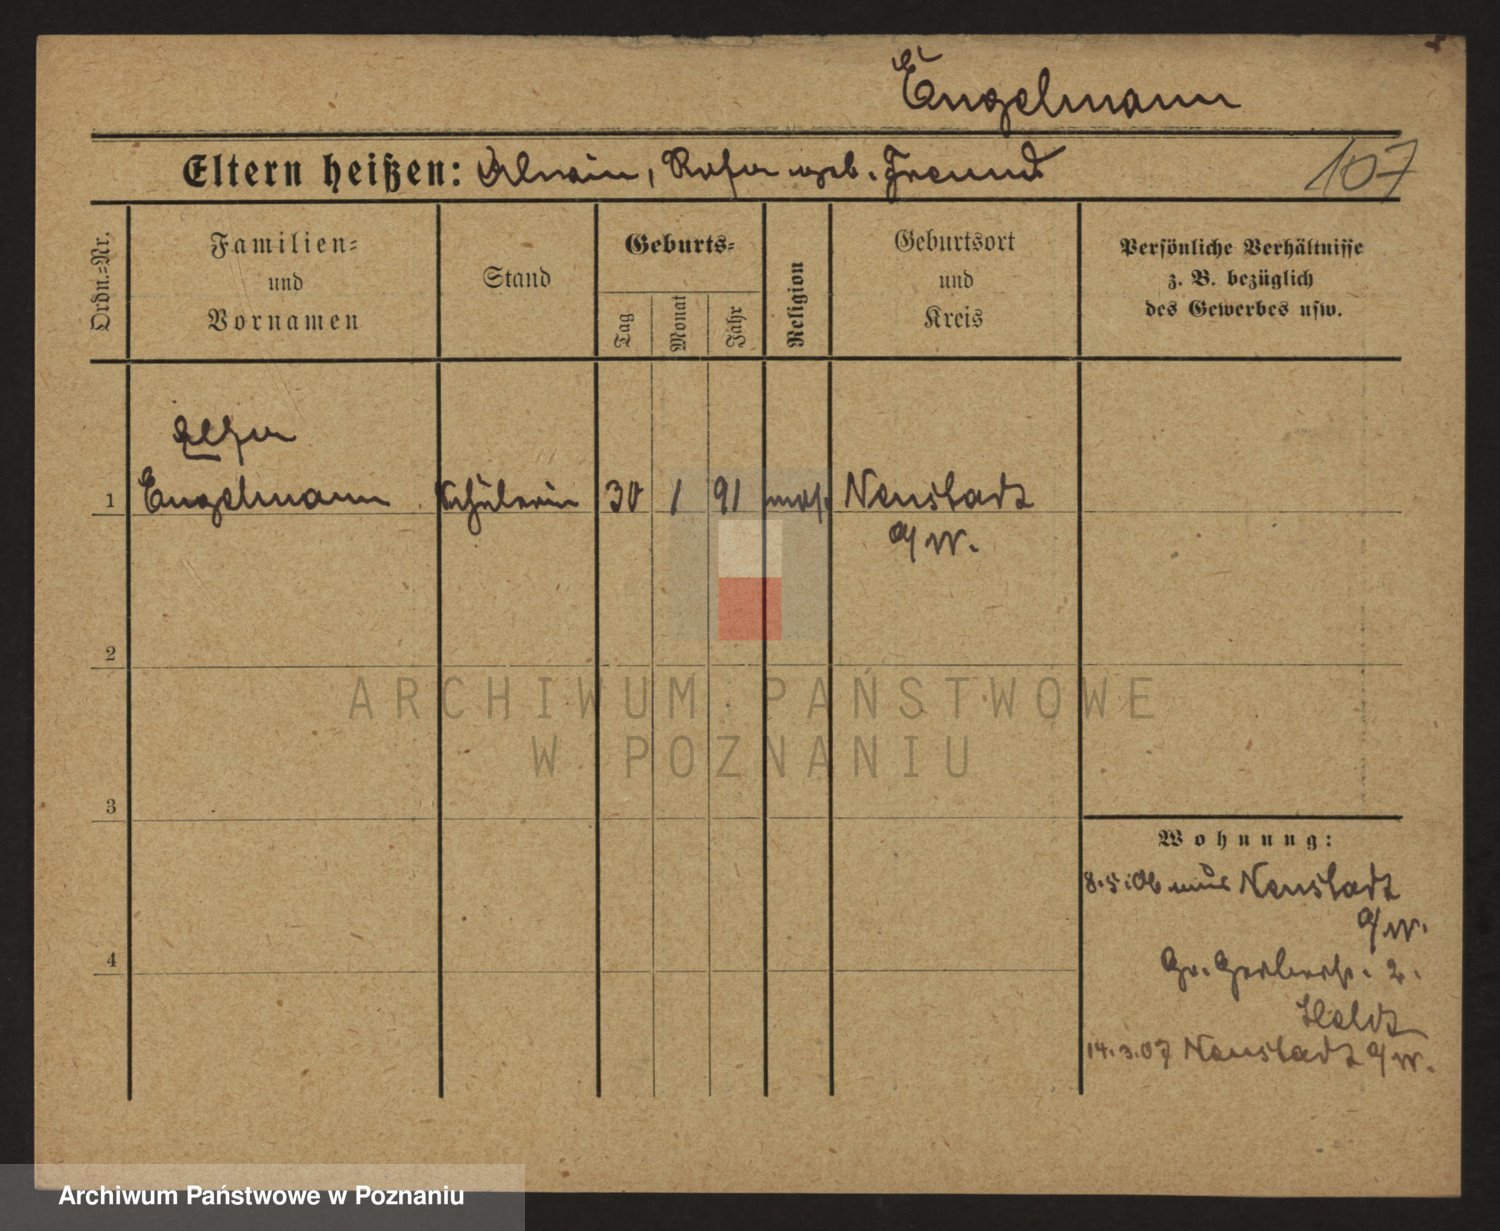 Engelmann
Eltern heißen: Alwin, Rosa geb. Freund
107
Ordn.=Nr.
Familien=
und
Vornamen
Stand
Geburts=
Tag
Monat
Jahr
Religion
Geburtsort
und
Kreis
Persönliche Verhältnisse
z. B. bezüglich
des Gewerbes usw.
1
Engelmann Schülerin 30 1 91 mos. Neustadt
a/W.
2
ARCHIWUM PAŃSTWOWE
W POZNANIU
3
Wohnung:
8.5.06 aus Neustadt
a/W.
Gr. Gerberstr. 2.
14.3.07 Neustadt a/W.
4
Archiwum Państwowe w Poznaniu